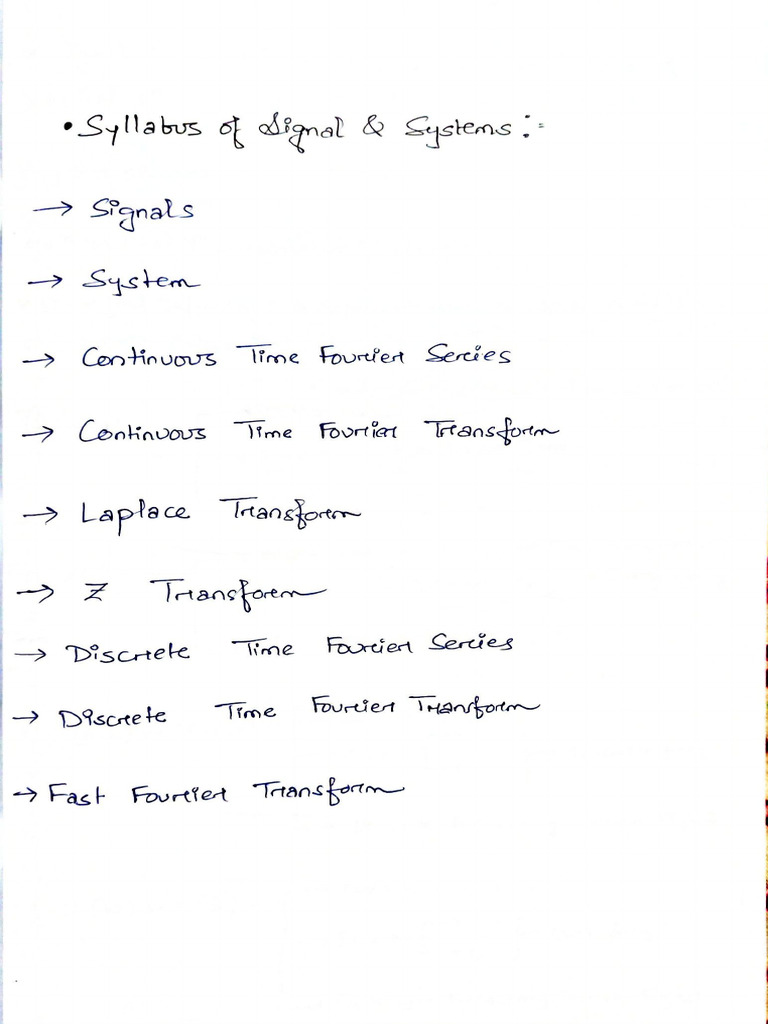 • Syllabus of Signal & Systems :-
→ Signals
→ System
→ Continuous Time Fourier Series
→ Continuous Time Fourier Transform
→ Laplace Transform
→ Z Transform
→ Discrete Time Fourier Series
→ Discrete Time Fourier Transform
→ Fast Fourier Transform